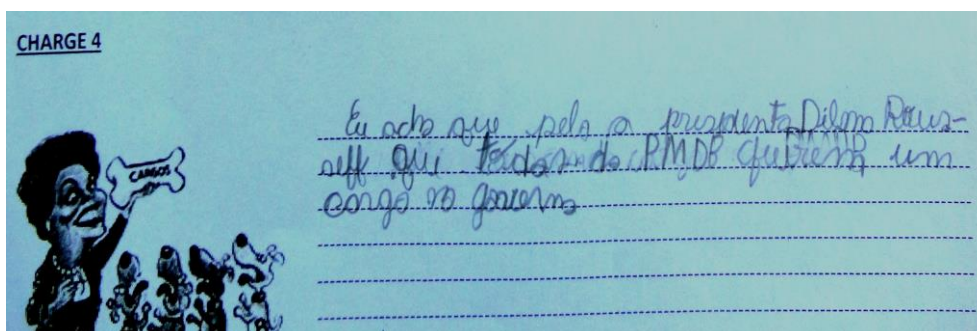 CHARGE 4
CARGOS
Eu acho que pela a presidenta Dilma Rous-
seff que todos do PMDB querem um
cargo no governo